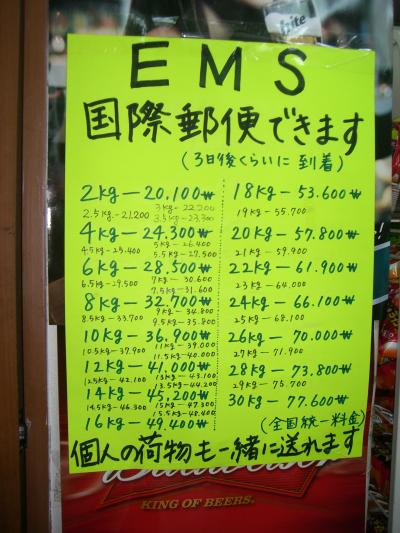 bite
EMS
国際郵便できます
(3日後くらいに到着)
2kg-20,100₩
2.5kg-21,200 3kg-22,200
3.5kg-23,300
4kg-24,300₩
4.5kg-25,400 5kg-26,400
5.5kg-27,500
6kg-28,500₩
6.5kg-29,500 7kg-30,600
7.5kg-31,600
8kg-32,700₩
8.5kg-33,700 9kg-34,800
9.5kg-35,800
10kg-36,900₩
10.5kg-37,900 11kg-39,000
11.5kg-40,000
12kg-41,000₩
12.5kg-42,100 13kg-43,100
13.5kg-44,200
14kg-45,200₩
14.5kg-46,300 15kg-47,300
15.5kg-48,400
16kg-49,400₩
18kg-53.600₩
19kg-55.700
20kg-57.800₩
21kg-59.900
22kg-61.900₩
23kg-64,000
24kg-66.100₩
25kg-68.100
26kg-70.000₩
27kg-71.900
28kg-73.800₩
29kg-75.700
30kg-77.600₩
(全国統一料金)
個人の荷物も一緒に送れます
Budweiser
KING OF BEERS.